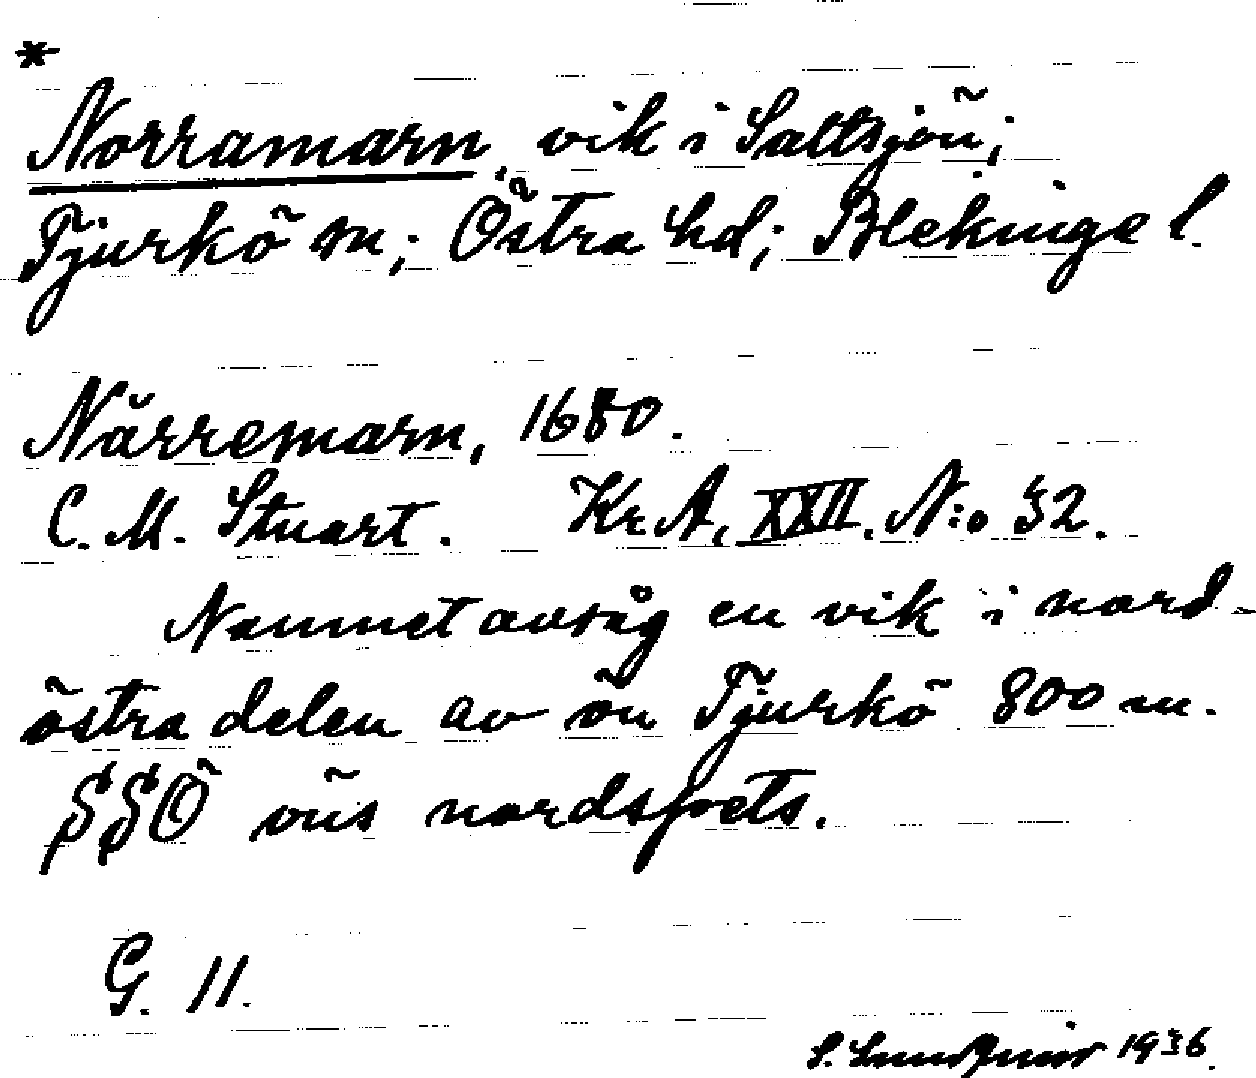 *
Norramarn, vik i Saltsjön;
Tjurkö m; Östra hd; Blekinge l.
Närremarn, 1680.
C. M. Stuart. Kr A, XXII. N:o 32.
Namnet avsåg en vik i nord-
östra delen av ön Tjurkö 800 m.
SSÖ öns nordspets.
G. 11.
S. 1936.